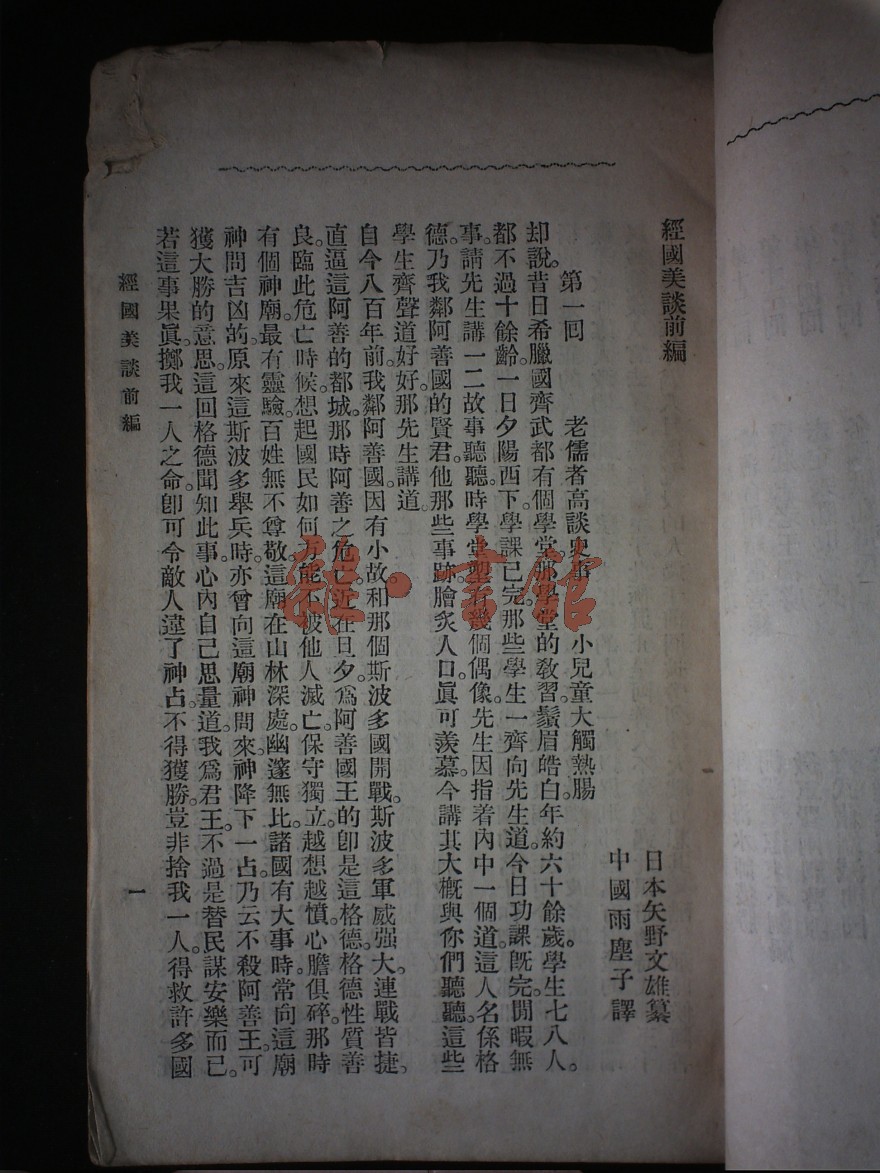 經國美談前編
日本矢野文雄纂
中國雨塵子譯
第一回 老儒者高談史事 小兒童大觸熱腸。
却說。昔日希臘國齊武都有個學堂。那學堂的敎習。鬚眉皓白。年約六十餘歲。學生七八人。
都不過十餘齡。一日夕陽西下。學課已完。那些學生一齊向先生道。今日功課旣完。閒暇無
事。請先生講一二故事聽聽。時學堂塑有幾個偶像。先生因指着內中一個道。這人名係格
德。乃我鄰阿善國的賢君。他那些事跡。膾炙人口。眞可羨慕。今講其大槪與你們聽聽。這些
學生齊聲道好好。那先生講道。
自今八百年前。我鄰阿善國。因有小故。和那個斯波多國開戰。斯波多軍威强大。連戰皆捷。
直逼這阿善的都城。那時阿善之危亡。近在旦夕。爲阿善國王的。卽是這格德。格德性質善
良。臨此危亡時候。想起國民如何方能不被他人滅亡。保守獨立。越想越憤。心膽俱碎。那時
有個神廟。最有靈驗。百姓無不尊敬。這廟在山林深處。幽邃無比。諸國有大事時。常向這廟
神問吉凶的。原來這斯波多舉兵時。亦曾向這廟神問來。神降下一占。乃云不殺阿善王。可
獲大勝的意思。這回格德聞知此事。心內自己思量道。我爲君王。不過是替民謀安樂而已。
若這事果眞。擲我一人之命。卽可令敵人違了神占。不得獲勝。豈非捨我一人。得救許多國
經國美談前編
一
雜·書館